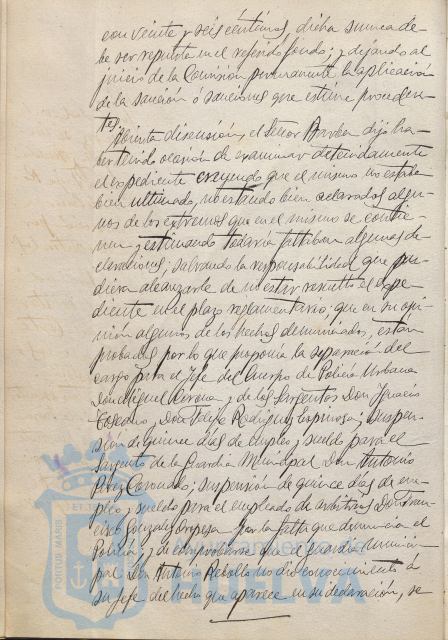 con veinte y seis céntimos, dicha suma ca de-
be ser repuesta en el referido fondo; y dejando al
juicio de la Comisión permanente la aplicación
de la sanción ó sanciones que estime proceden-
tes.
Abierta discusión, el Señor Barba dijo ha-
ber tenido ocasión de examinar detenidamente
el expediente creyendo que el mismo no estaba
bien ultimado, no estando bien aclarados algu-
nos de los extremos que en el mismo se contie-
nen y estimando todavía faltaban algunas de-
claraciones; salvando la responsabilidad que pu-
diera alcanzarle de no estar resuelto el expe-
diente en el plazo reglamentario; que en su opi-
nión algunos de los hechos denunciados, están
probados por lo que proponía la separación del
cargo para el Jefe del Cuerpo de Policía Urbana
Don Miguel y de los Sargentos Don Ignacio
Don Felipe Rodríguez Espinosa; suspen-
sión de quince días de empleo y sueldo para el
Sargento de la Guardia Municipal Don Antonio
Pérez Coronado; suspensión de quince días de em-
pleo y sueldo para el empleado de arbitrios Don Fran-
cisco González Oropesa por la falta que denuncia el
Policía; y de comprobarse que el guardia munici-
pal Don Antonio Rebollo no dio conocimiento á
su Jefe del hecho que aparece en su declaración, se
PORTUS MARIS
Ayuntamiento de
HUELVA